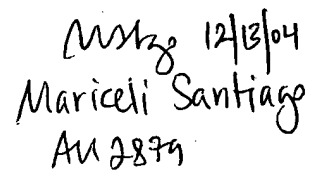 12/13/04
Mariceli Santiago
AU 2879